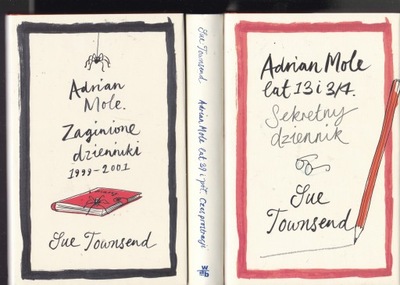 Adrian
Mole.
Zaginione
dzienniki
1999-2001
Sue Townsend
Sue Townsend
Adrian Mole lat 39 i pół. Czas prostracji
Adrian Mole
lat 13 i 3/4.
Sekretny
dziennik
Sue
Townsend